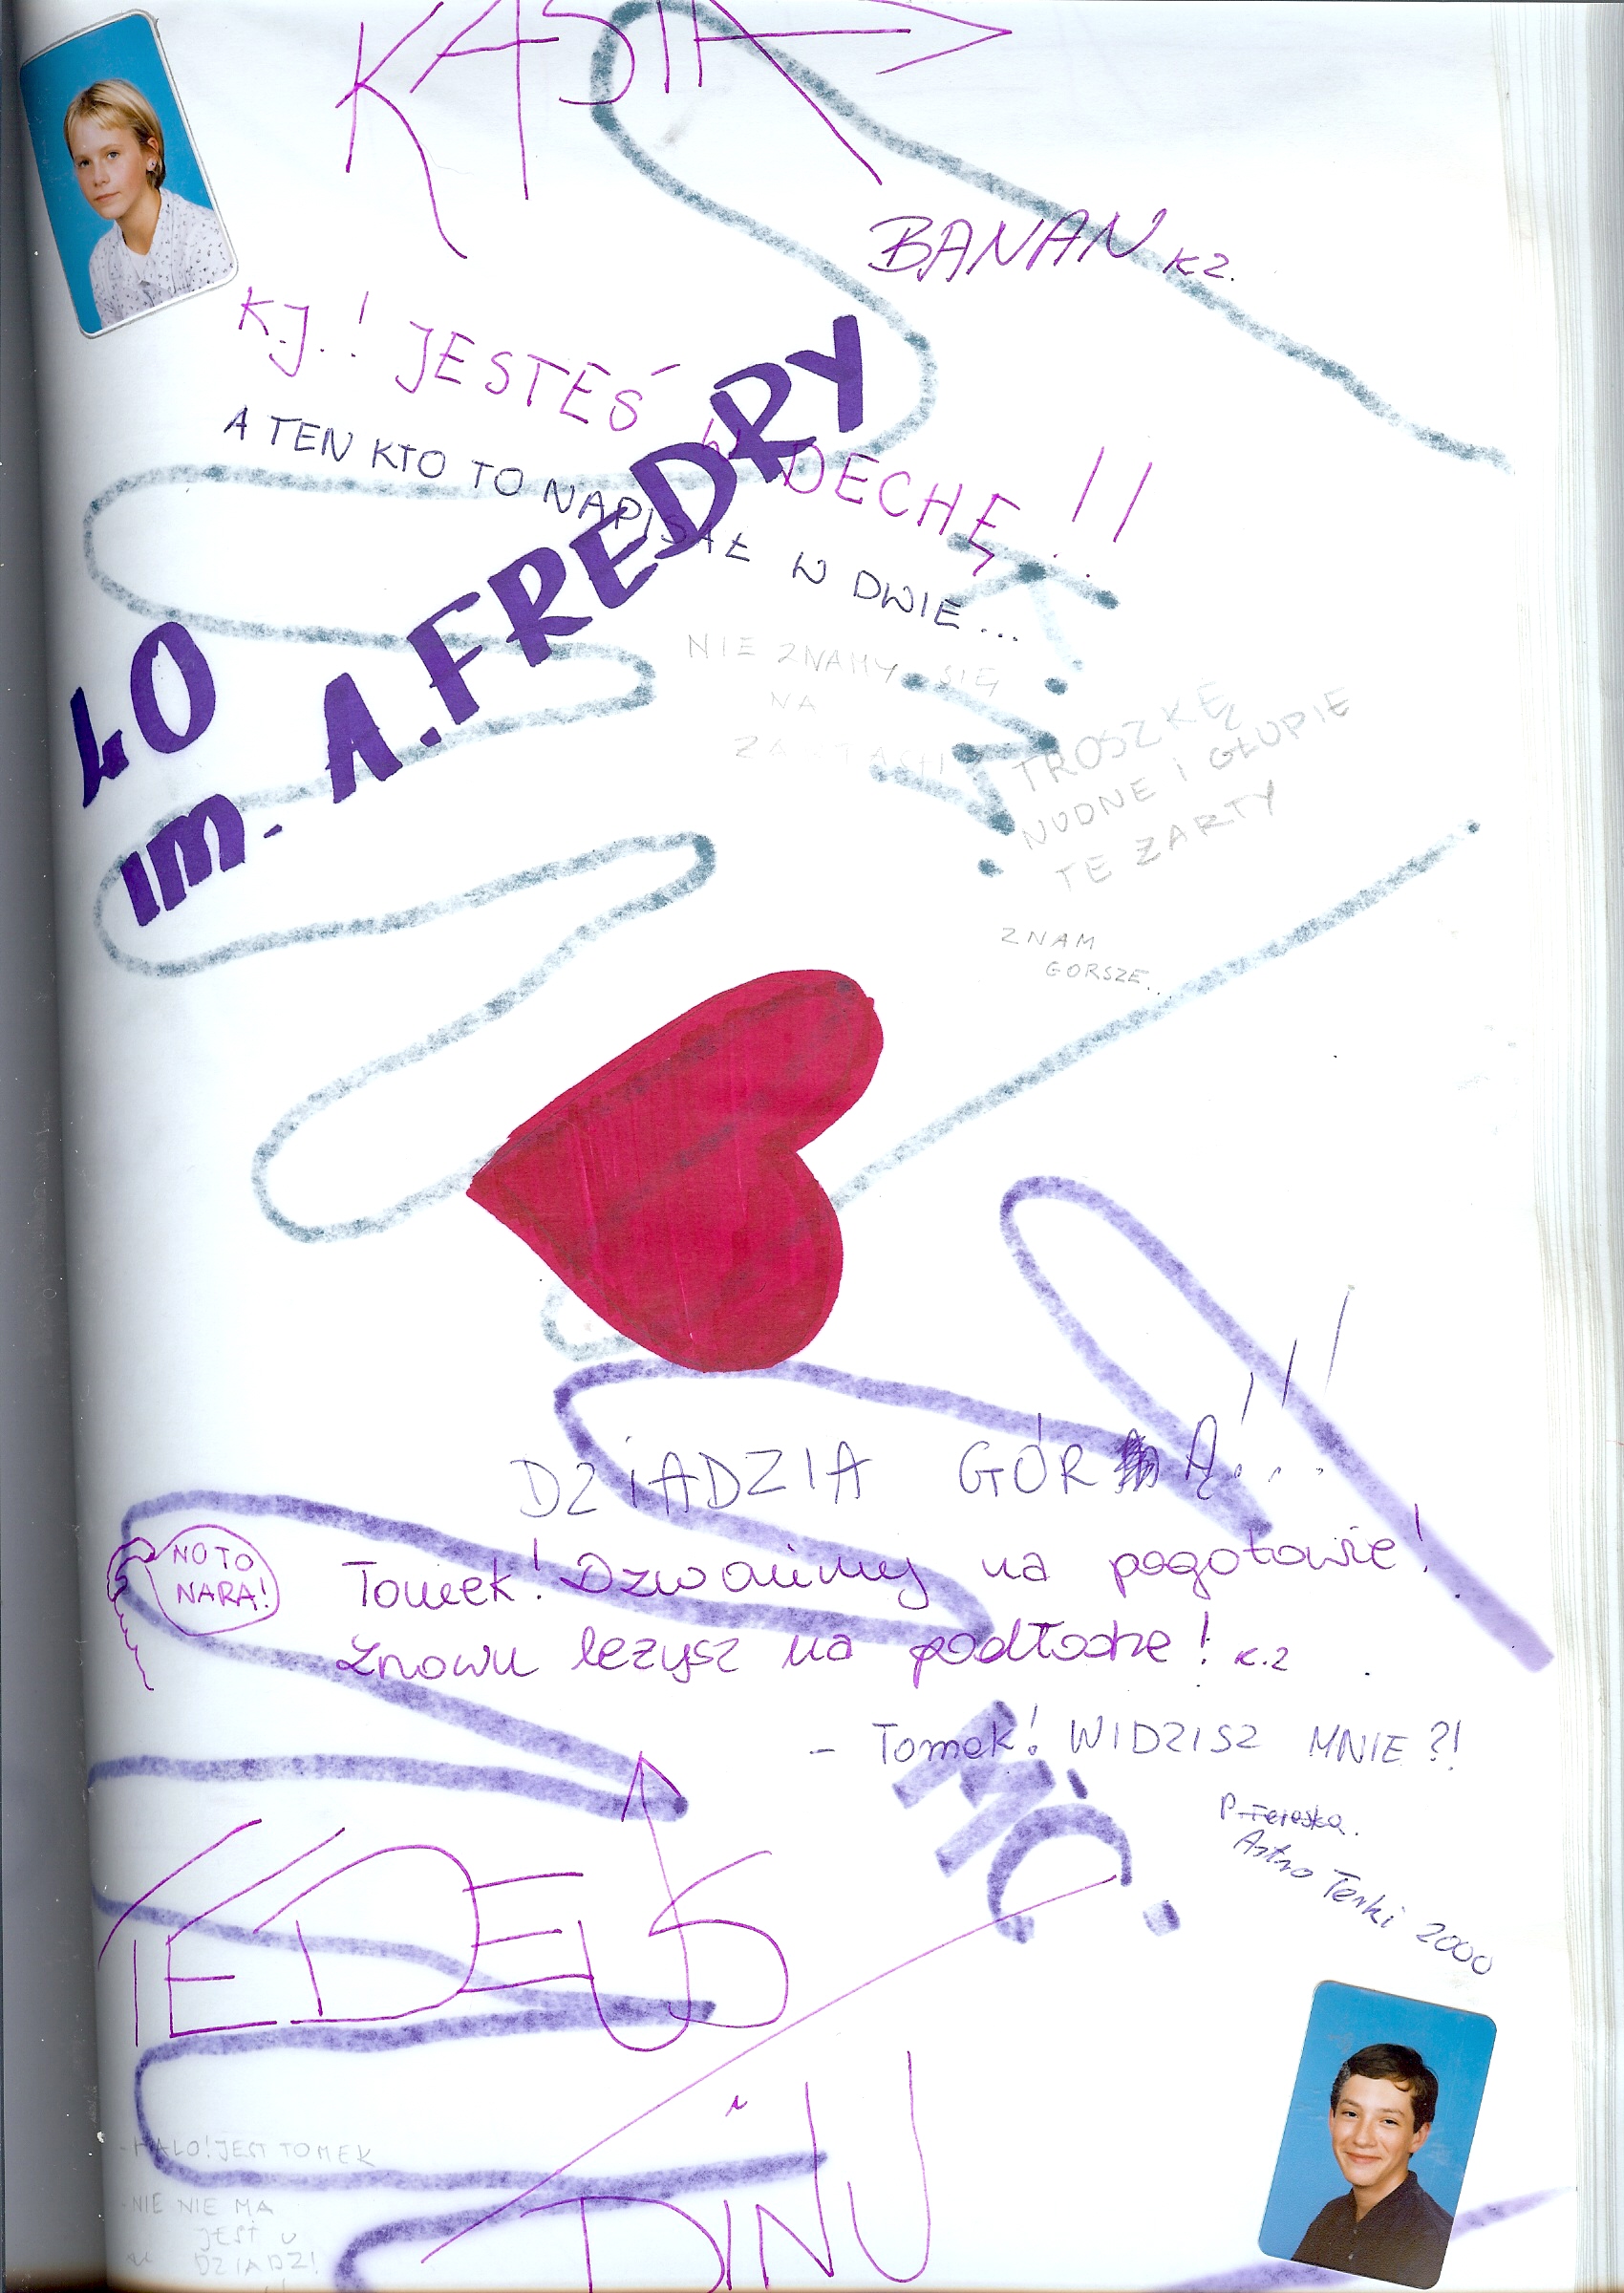 KASIA
BANAN K2.
K.J.! JESTEŚ W DECHĘ!!
A TEN KTO TO NAPISAŁ W DWIE...
LO
IM. A. FREDRY
NIE ZNAMY SIĘ
NA
TROSZKĘ
NUDNE i GŁUPIE
TE ŻARTY
ZNAM
GORSZE...
K.J.
DZIADZIA GÓRĄ!!!
NO TO
NARA!
Tomek! Dzwonimy na pogotowie!
Znowu leżysz na podłodze! K.2
- Tomek! WIDZISZ MNIE?!
M.C.
Astro Terki 2000
TEDEUS
i
DINU
- HALO! JEST TOMEK
- NIE NIE MA
JEST U
DZIADZI